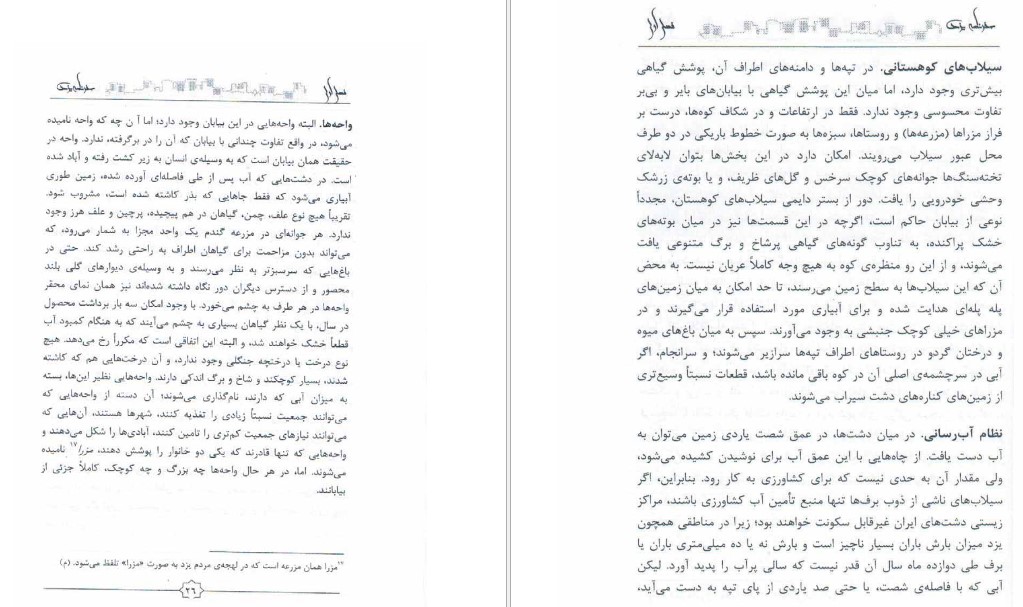 واحه‌ها. البته واحه‌هایی در این بیابان وجود دارد؛ اما آن چه که واحه نامیده
می‌شود، در واقع تفاوت چندانی با بیابان که آن را در برگرفته، ندارد. واحه در
حقیقت همان بیابان است که به وسیله‌ی انسان به زیر کشت رفته و آباد شده
است. در دشت‌هایی که آب پس از طی فاصله‌ای آورده شده، زمین طوری
آبیاری می‌شود که فقط جاهایی که بذر کاشته شده است، مشروب شود.
تقریباً هیچ نوع علف، چمن، گیاهان در هم پیچیده، پرچین و علف هرز وجود
ندارد. هر جوانه‌ای در مزرعه گندم یک واحد مجزا به شمار می‌رود، که
می‌تواند بدون مزاحمت برای گیاهان اطراف به راحتی رشد کند. حتی در
باغ‌هایی که سرسبزتر به نظر می‌رسند و به وسیله‌ی دیوارهای گلی بلند
محصور و از دسترس دیگران دور نگاه داشته شده‌اند نیز همان نمای محقر
واحه‌ها در هر طرف به چشم می‌خورد. با وجود امکان سه بار برداشت محصول
در سال، با یک نظر گیاهان بسیاری به چشم می‌آیند که به هنگام کمبود آب
قطعاً خشک خواهند شد، و البته این اتفاقی است که مکرراً رخ می‌دهد. هیچ
نوع درخت یا درختچه جنگلی وجود ندارد، و آن درخت‌هایی هم که کاشته
شدند، بسیار کوچکند و شاخ و برگ اندکی دارند. واحه‌هایی نظیر این‌ها، بسته
به میزان آبی که دارند، نام‌گذاری می‌شوند؛ آن دسته از واحه‌هایی که
می‌توانند جمعیت نسبتاً زیادی را تغذیه کنند، شهرها هستند، آن‌هایی که
می‌توانند نیازهای جمعیت کم‌تری را تامین کنند، آبادی‌ها را شکل می‌دهند و
واحه‌هایی که تنها قادرند که یکی دو خانوار را پوشش دهند، مزرا۱۷ نامیده
می‌شوند. اما، در هر حال واحه‌ها چه بزرگ و چه کوچک، کاملاً جزئی از
بیابانند.
۱۷مزرا همان مزرعه است که در لهجه‌ی مردم یزد به صورت «مزرا» تلفظ می‌شود. (م)
۲۶
سیلاب‌های کوهستانی. در تپه‌ها و دامنه‌های اطراف آن، پوشش گیاهی
بیش‌تری وجود دارد، اما میان این پوشش گیاهی با بیابان‌های بایر و بی‌بر
تفاوت محسوسی وجود ندارد. فقط در ارتفاعات و در شکاف کوه‌ها، درست بر
فراز مزراها (مزرعه‌ها) و روستاها، سبزه‌ها به صورت خطوط باریکی در دو طرف
محل عبور سیلاب می‌رویند. امکان دارد در این بخش‌ها بتوان لابه‌لای
تخته‌سنگ‌ها جوانه‌های کوچک سرخس و گل‌های ظریف، و یا بوته‌ی زرشک
وحشی خودرویی را یافت. دور از بستر دایمی سیلاب‌های کوهستان، مجدداً
نوعی از بیابان حاکم است، اگرچه در این قسمت‌ها نیز در میان بوته‌های
خشک پراکنده، به تناوب گونه‌های گیاهی پرشاخ و برگ متنوعی یافت
می‌شوند، و از این رو منظره‌ی کوه به هیچ وجه کاملاً عریان نیست. به محض
آن که این سیلاب‌ها به سطح زمین می‌رسند، تا حد امکان به میان زمین‌های
پله پله‌ای هدایت شده و برای آبیاری مورد استفاده قرار می‌گیرند و در
مزراهای خیلی کوچک جنبشی به وجود می‌آورند. سپس به میان باغ‌های میوه
و درختان گردو در روستاهای اطراف تپه‌ها سرازیر می‌شوند؛ و سرانجام، اگر
آبی در سرچشمه‌ی اصلی آن در کوه باقی مانده باشد، قطعات نسبتاً وسیع‌تری
از زمین‌های کناره‌های دشت سیراب می‌شوند.
نظام آب‌رسانی. در میان دشت‌ها، در عمق شصت یاردی زمین می‌توان به
آب دست یافت. از چاه‌هایی با این عمق آب برای نوشیدن کشیده می‌شود،
ولی مقدار آن به حدی نیست که برای کشاورزی به کار رود. بنابراین، اگر
سیلاب‌های ناشی از ذوب برف‌ها تنها منبع تأمین آب کشاورزی باشند، مراکز
زیستی دشت‌های ایران غیرقابل سکونت خواهند بود؛ زیرا در مناطقی همچون
یزد میزان بارش باران بسیار ناچیز است و بارش نه یا ده میلی‌متری باران یا
برف طی دوازده ماه سال آن قدر نیست که سالی پرآب را پدید آورد. لیکن
آبی که با فاصله‌ی شصت، یا حتی صد یاردی از پای تپه به دست می‌آید،